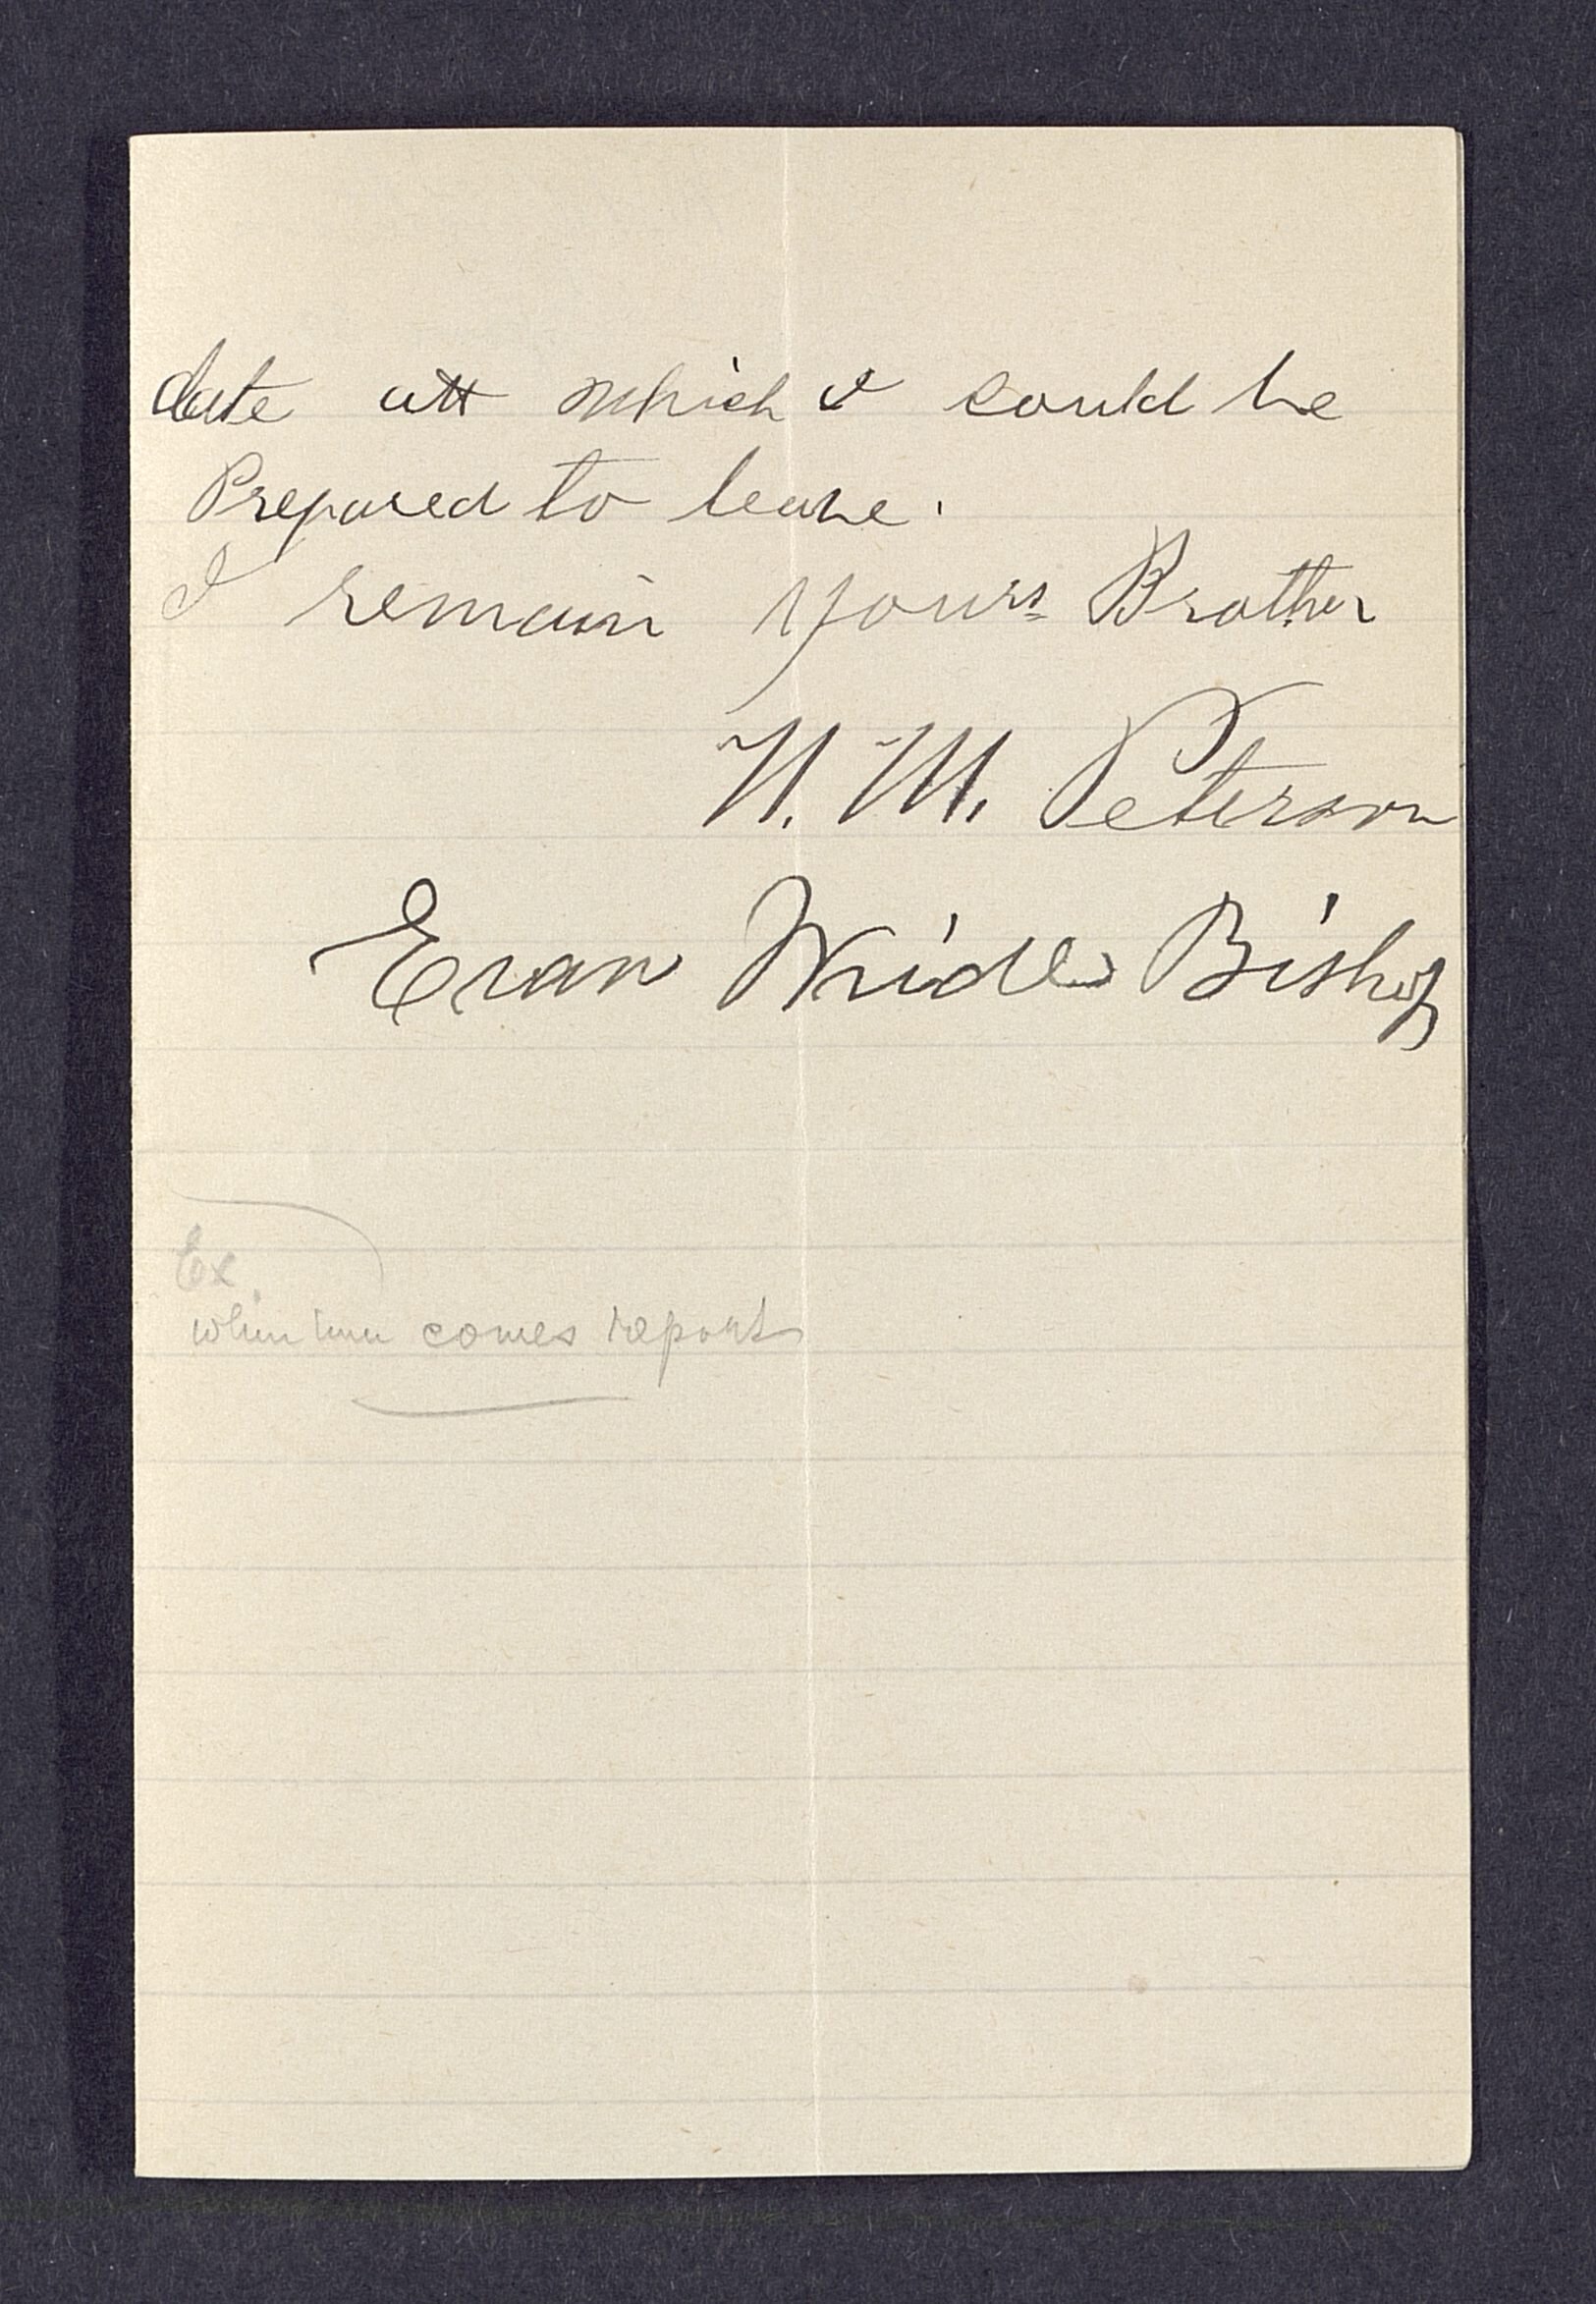 date att which I could be
Prepared to leave.
I remain yours Brother
N. M. Peterson
Evan Wride Bishop
Ex.
when time comes report